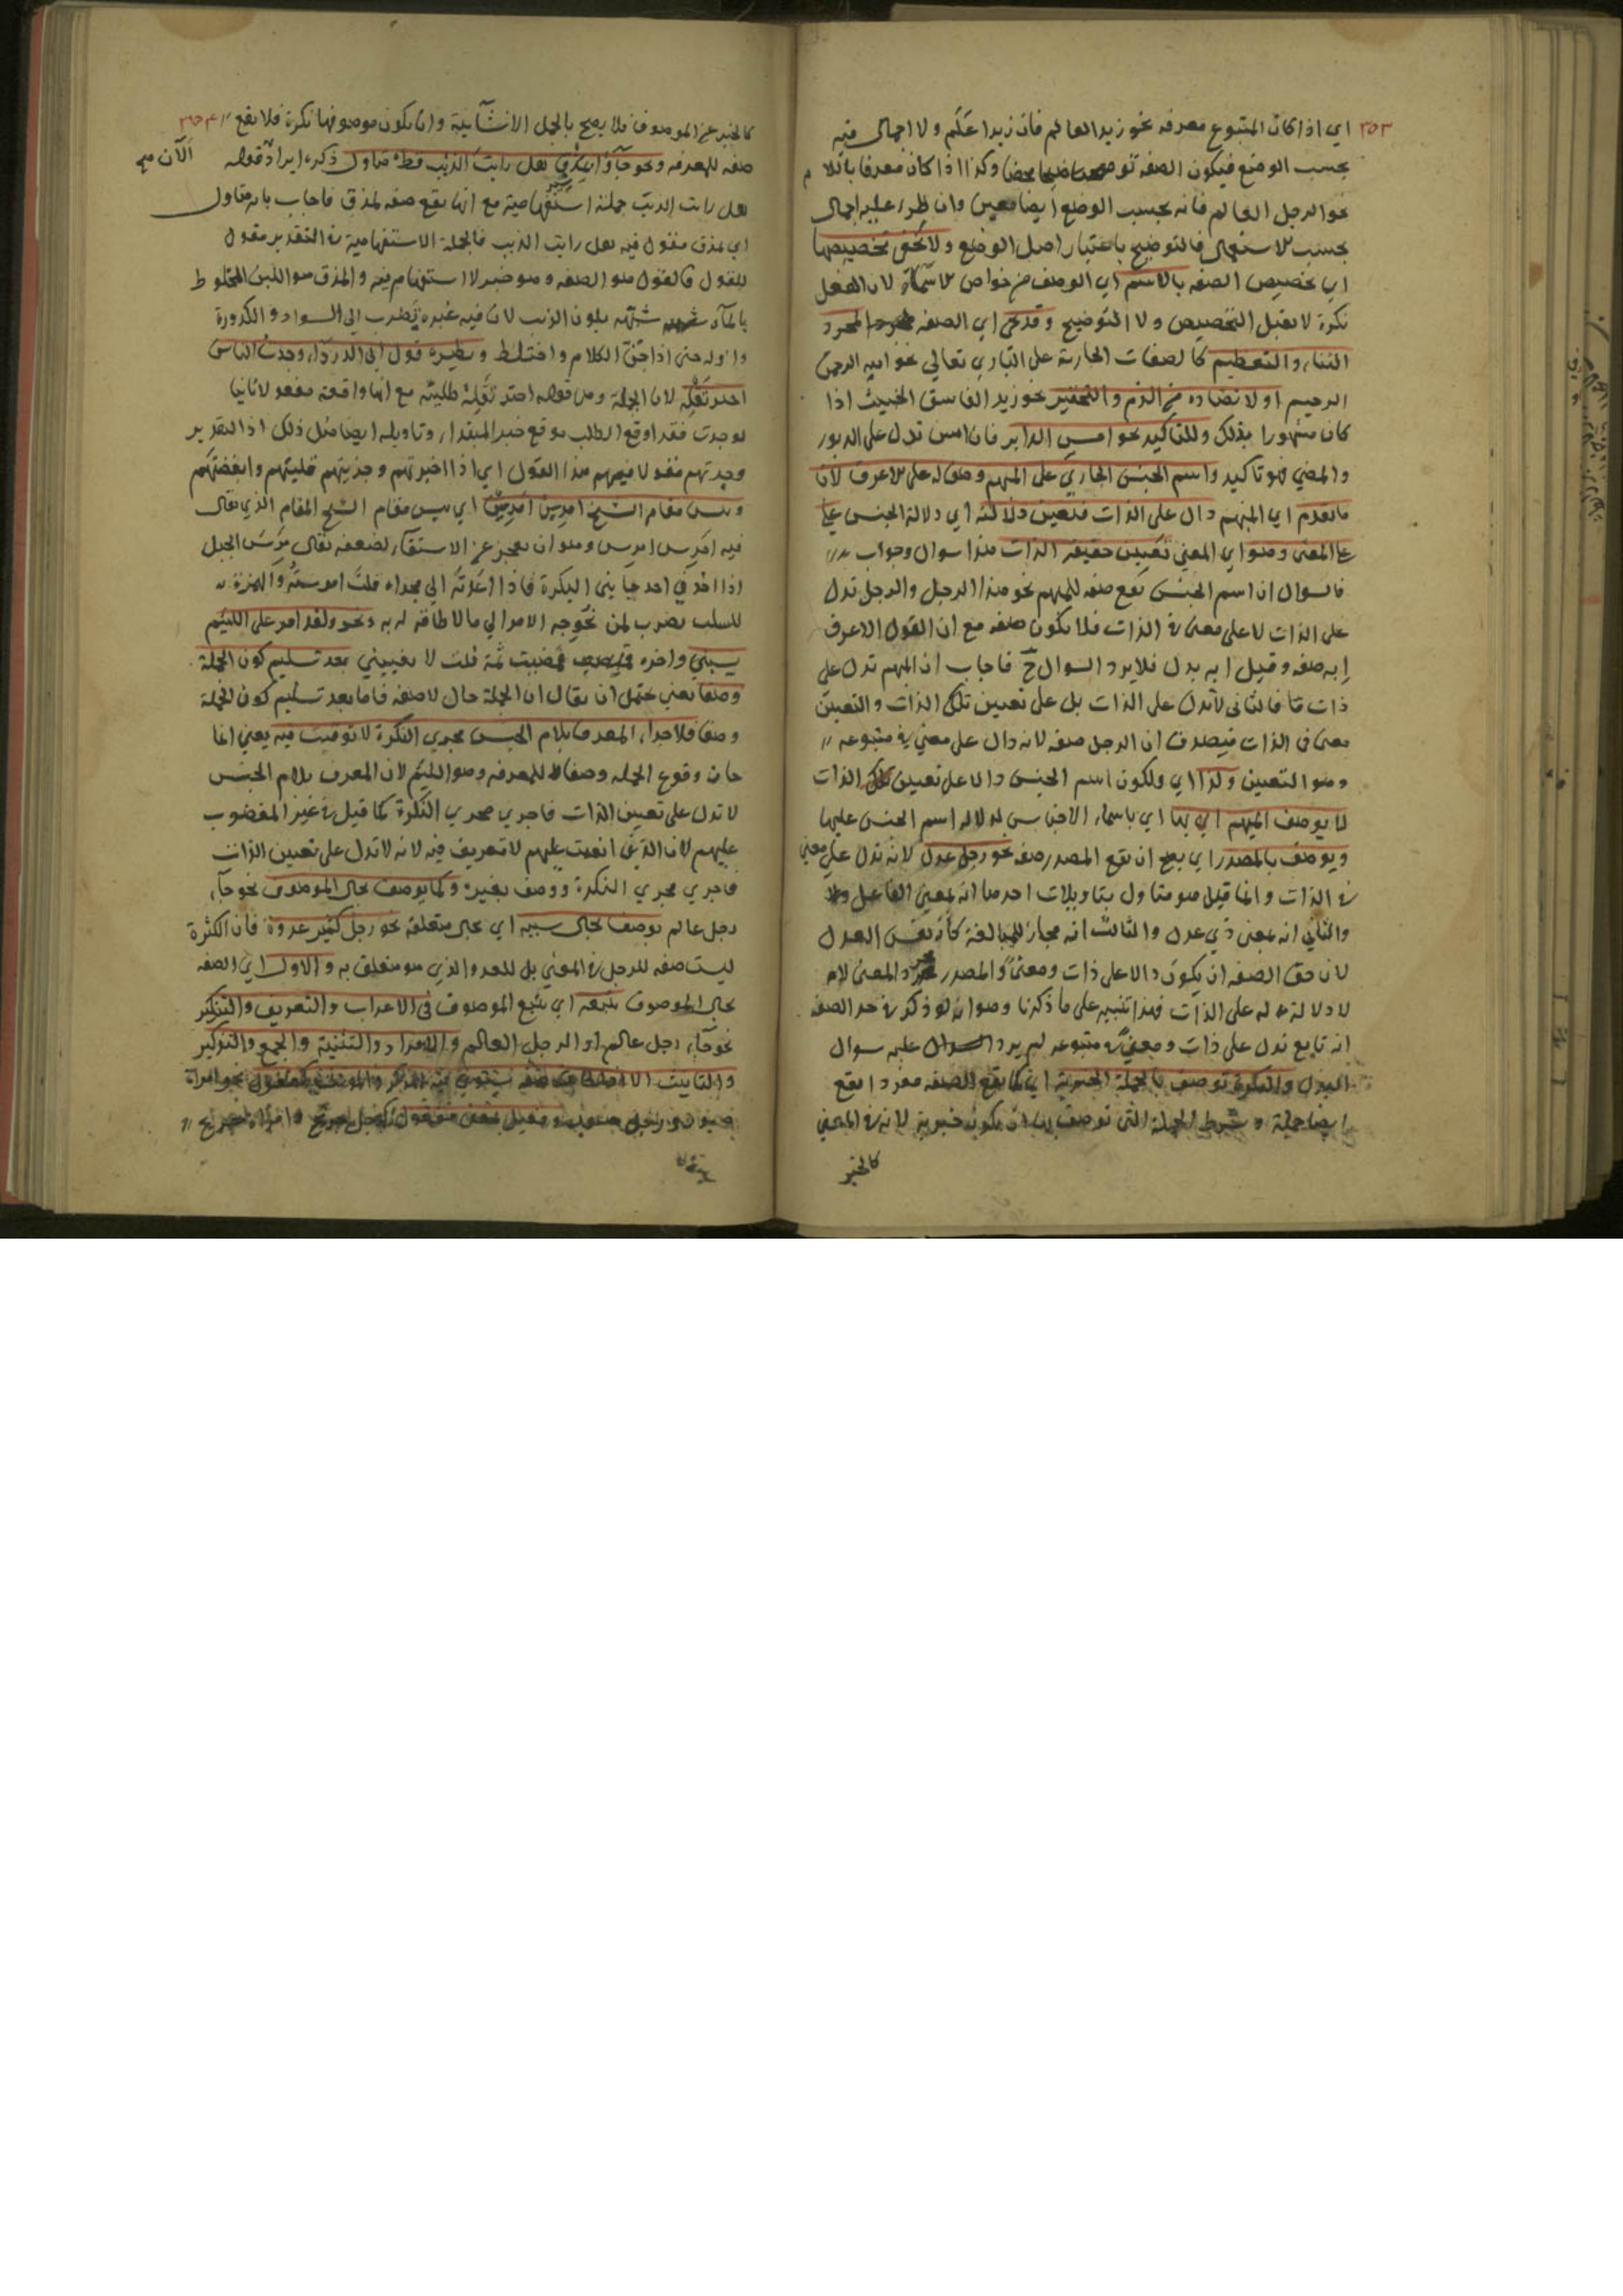 ٢٥٣
اي اذا كان المتبوع معرفه نحو زيد العالم فان زيدا علم ولا اجمال فيه
بحسب الوضع فيكون الصفه توضيحا محضا وكذا اذا كان معرفا باللام
نحو الرجل العالم فانه بحسب الوضع ايضا معين وان طرء عليه اجمال
بحسب الاستعمال فالتوضيح باعتبار اصل الوضع ولا تخفى تخصيصها
اي تخصيص الصفه بالاسم اي الوصف من خواص الاسماء لان الفعل
نكرة لا يقبل التخصيص ولا التوضيح وقد تجئ اي الصفه لمجرد
الثناء والتعظيم كالصفات الجارية على الباري تعالي نحو الله الرحمن
الرحيم او لما تضاده من الذم والتحقير نحو زيد الفاسق الخبيث اذا
كان مشهورا بذلك وللتاكيد نحو امس الدابر فان امس تدل على الدبور
والمضي فهو تاكيد واسم الجنس الجاري على المبهم وصف له على الاعرف لان
ما تقدم اي المبهم دال على الذات فتعين دلالته اي دلالة الجنس على
على المعنى وهو اي المعني تعيين حقيقه الذات هذا سوال وجواب
فالسوال ان اسم الجنس تقع صفه للمبهم نحو هذا الرجل والرجل تدل
على الذات لا على معنى في الذات فلا يكون صفه مع ان القول الاعرف
انه صفه وقيل انه بدل فلا يرد السوال ح فاجاب ان المبهم تدل على
ذات ما فالثاني لا تدل على الذات بل على تعيين تلك الذات والتعيين
معنى في الذات فيصدق ان الرجل صفه لانه دال على معني في متبوعه
وهو التعيين ولذا اي ولكون اسم الجنس دالا على تعيين تلك الذات
لا يوصف المبهم الا بها اي باسماء الاجناس لدلالة اسم الجنس عليها
ويوصف بالمصدر اي يصح ان تقع المصدر صفه نحو رجل عدل لانه تدل على معني
في الذات وانما قيل هو متاول بتاويلات احدها انه بمعنى الفاعل
والثاني انه بمعنى ذي عدل والثالث انه مجاز للمبالغة كأنه نفس العدل
لان حق الصفه ان يكون دالا على ذات ومعنى والمصدر مجرد المعنى
لا دلالة له على الذات فهذا تنبيه على ما ذكرنا وهو انه لو ذكر في حد الصفه
انه تابع تدل على ذات ومعنى في متبوعه لم يرد عليه سوال
البدل والنكرة توصف بالجملة الخبرية اي كما يقع الصفه مفردا يقع
ايضا جملة وشرط الجملة التى توصف بها ان يكون خبرية لانه في المعني
كالخبر
كالخبر عن الموصوف فلا يصح بالجمل الانشآئية وان يكون موصوفها نكرة فلا يقع
صفه للمعرفه ونحو جآؤا بمذق هل رايت الذئب قط متاول ذكره ايرادا قوله الآن صح
هل رايت الذئب جملة استفهامية مع انها يقع صفه لمذق فاجاب بانه متاول
اي بمذق مقول فيه هل رايت الذئب فالجملة الاستفهامية في التقدير مقول
للقول فالقول هو الصفه وهو خبر لا استفهام فيه والمذق هو اللبن المخلوط
بالمآء شبهه بلون الذئب لان فيه غبرة تضرب الى السواد والكدورة
واوله حتى اذا جن الظلام واختلط ونظيره قول ابي الدرداء وجدت الناس
اخبر تقله لان الجملة من قوله اخبر تقله طلبيته مع انها واقعة مفعولا ثانيا
لوجدت فقد اوقع الطلب موقع خبر المبتدا وتاويله ايضا مثل ذلك اذ التقدير
وجدتهم مقولا فيهم هذا القول اي اذا اخبرتهم وجربتهم قليتهم وابغضتهم
وبئس مقام الشيخ امرس امرس اي بئس مقام الشيخ المقام الذي يقال
فيه امرس امرس وهو ان يعجز عن الاستقآء لضعفه يقال مرس الحبل
اذا اخذ في احد جانبي البكرة فاذا اعدته الى مجراه قلت امرسته والهمزة
للسلب يضرب لمن تحوجه الامر الي ما لا طاقة له به ونحو ولقد امر على اللئيم
يسبني واخره فمضيت ثمة قلت لا يعنيني بعد تسليم كون الجملة
وصفا يعني يحتمل ان يقال ان الجملة حال لا صفه فاما بعد تسليم كون الجملة
وصفا فلاجراء المعرف بلام الجنس مجري النكرة لا توقيت فيه يعني انما
جاز وقوع الجمله وصفا للمعرفه وهو اللئيم لان المعرف بلام الجنس
لا تدل على تعيين الذات فاجري مجري النكرة كما قيل في غير المغضوب
عليهم لان الذي انعمت عليهم لا تعريف فيه لانه لا تدل على تعيين الذات
فاجري مجري النكرة ووصف بغير وكما يوصف بحال الموصوف نحو جآء
رجل عالم يوصف بحال سببه اي بحال متعلقه نحو رجل كثير عدوه فان الكثرة
ليست صفه للرجل في المعني بل للعدو الذي هو متعلق به والاول اي الصفه
بحال الموصوف تتبعه اي تتبع الموصوف في الاعراب والتعريف والتنكير
نحو جآء رجل عالم او الرجل العالم والافراد والتثنية والجمع والتذكير
والتانيث الا اذا كان صفه يستوي فيه المذكر والمونث كفعول نحو امراة
صبور ورجل صبور وفعيل بمعنى مفعول كرجل جريح وامراة جريح